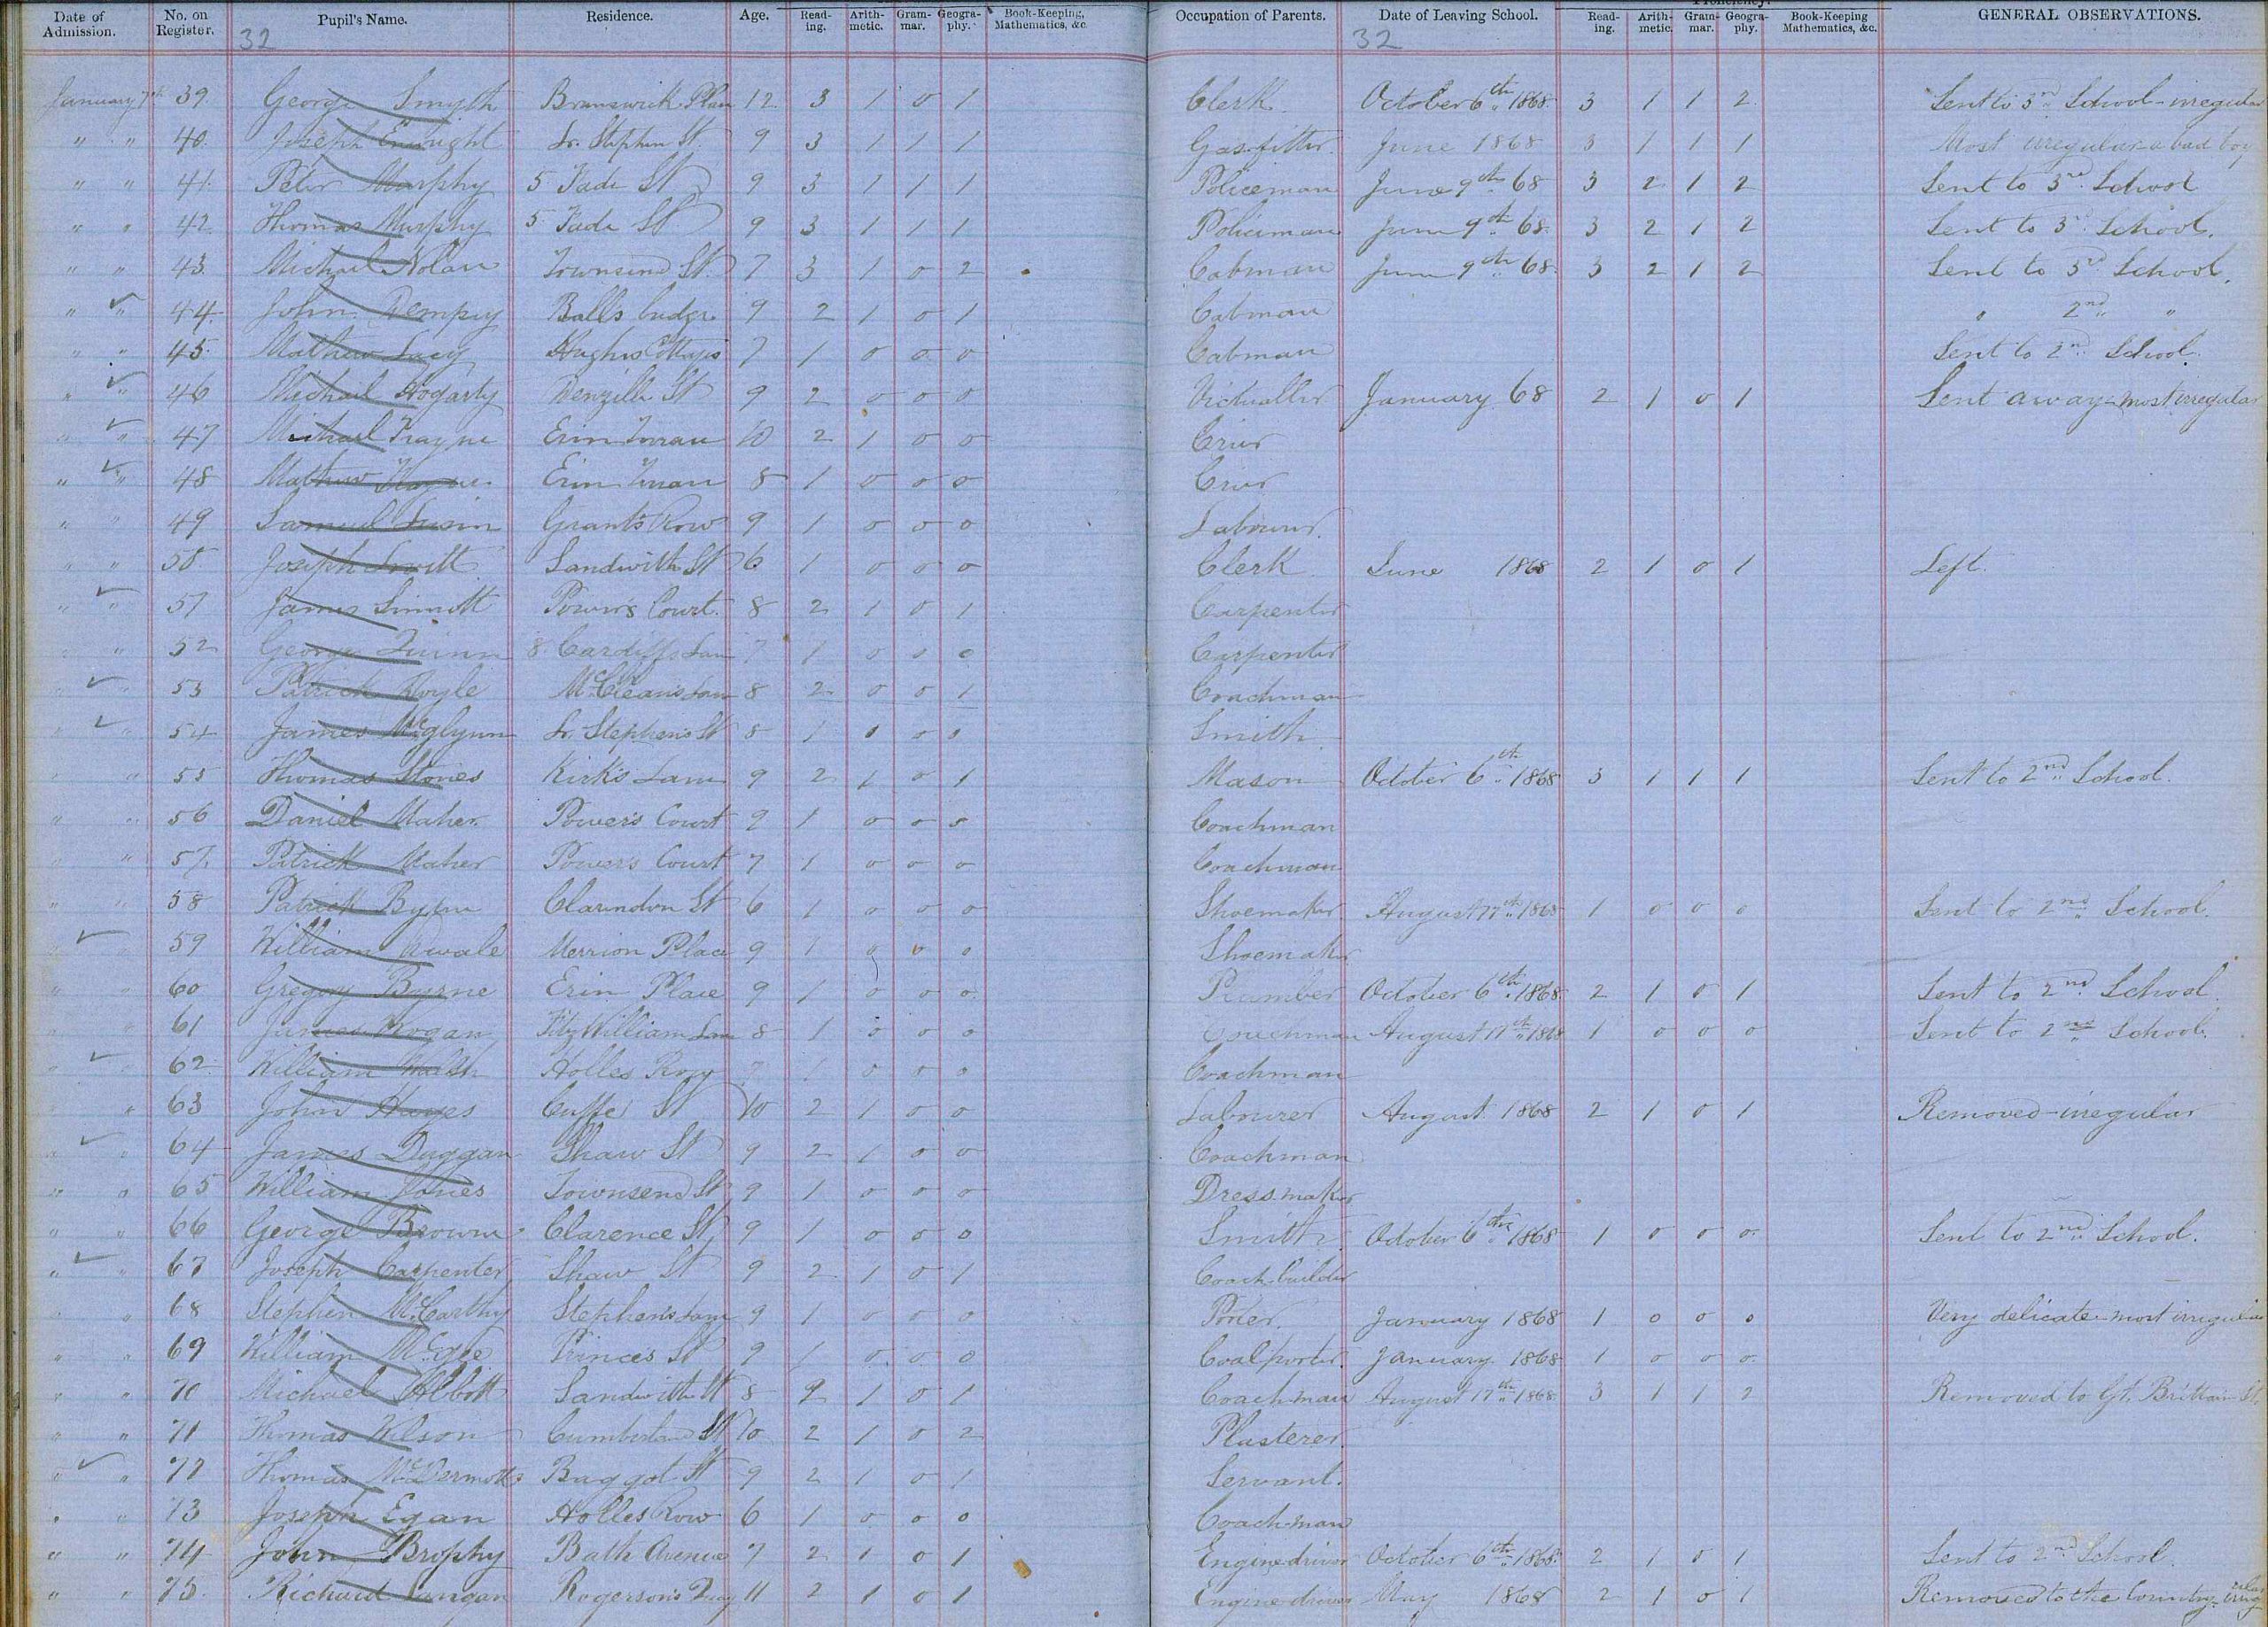 Date of Admission. No. on Register. Pupil's Name. Residence. Age. Read-ing. Arith-metic. Gram-mar. Geogra-phy. Book-Keeping, Mathematics, &c. Occupation of Parents. Date of Leaving School. Proficiency. Read-ing. Arith-metic. Gram-mar. Geogra-phy. Book-Keeping Mathematics, &c. GENERAL OBSERVATIONS.
32 32
January 7th 39. George Smyth Brunswick Place 12 3 1 0 1 Clerk October 6th 1868 3 1 1 2 Sent to 3rd School - irregular
" " 40. Joseph Enright Lr. Stephen St. 9 3 1 1 1 Gas-fitter June 1868 3 1 1 1 Most irregular a bad boy
" " 41. Peter Murphy 5 Fade St 9 3 1 1 1 Policeman June 9th 68 3 2 1 2 Sent to 3rd School
" " 42. Thomas Murphy 5 Fade St 9 3 1 1 1 Policeman June 9th 68. 3 2 1 2 Sent to 3rd School.
" " 43. Michael Nolan Townsend St. 7 3 1 0 2 Cabman June 9th 68. 3 2 1 2 Sent to 3rd School.
" " 44. John Dempsy Balls bridge 9 2 1 0 1 Cabman " 2nd "
" " 45. Mathew Lacy Hughes Cottages 7 1 0 0 0 Cabman Sent to 2nd School.
" " 46 Michael Hogarty Denzille St 9 2 0 0 0 Victualler January 68 2 1 0 1 Sent away - most irregular
" " 47 Michael Trayne Erin Terrace 10 2 1 0 0 Crier
" " 48 Mathew Trayne Erin Terrace 8 1 0 0 0 Crier
" " 49 Samuel Grants Row 9 1 0 0 0 Labourer.
" " 50. Joseph Sandwith St 6 1 0 0 0 Clerk June 1868 2 1 0 1 Left.
" " 51 James Sinnott Power's Court. 8 2 1 0 1 Carpenter
" " 52 George Quinn 8 Cardiffs Lane 7 1 0 0 0 Carpenter
" " 53 Patrick Doyle McClean's Lane 8 2 0 0 1 Coachman
" " 54 James McGlynn Lr. Stephens St 8 1 0 0 0 Smith
" " 55 Thomas Stones Kirk's Lane 9 2 1 0 1 Mason October 6th 1868 3 1 1 1 Sent to 2nd School.
" " 56 Daniel Maher Power's Court 9 1 0 0 0 Coachman
" " 57. Patrick Maher Power's Court 7 1 0 0 0 Coachman
" " 58 Patrick Byrne Clarendon St 6 1 0 0 0 Shoemaker August 17th 1868 1 0 0 0 Sent to 2nd School.
" " 59 William Merrion Place 9 1 0 0 0 Shoemaker
" " 60 Gregory Byrne Erin Place 9 1 0 0 0 Plumber October 6th 1868 2 1 0 1 Sent to 2nd School.
" " 61 James Hogan FitzWilliam Lane 8 1 0 0 0 Coachman August 17th 1868 1 0 0 0 Sent to 2nd School.
" " 62 William Walsh Holles Row 7 1 0 0 0 Coachman
" " 63 John Hayes Cuffe St 10 2 1 0 0 Labourer August 1868 2 1 0 1 Removed - irregular
" " 64 James Duggan Shaw St 9 2 1 0 0 Coachman
" " 65 William Jones Townsend St 9 1 0 0 0 Dress maker
" " 66 George Brown Clarence St. 9 1 0 0 0 Smith October 6th 1868 1 0 0 0 Sent to 2nd School.
" " 67 Joseph Carpenter Shaw St 9 2 1 0 1 Coach-builder
" " 68 Stephen McCarthy Stephen's Lane 9 1 0 0 0 Porter. January 1868 1 0 0 0 Very delicate - most irregular
" " 69 William McGee Prince's St 9 1 0 0 0 Coalporter. January 1868 1 0 0 0
" " 70 Michael Abbott Sandwith St 8 2 1 0 1 Coachman August 17th 1868. 3 1 1 2 Removed to Gt. Brittain St.
" " 71 Thomas Wilson Cumberland St 10 2 1 0 2 Plasterer.
" " 72 Thomas McDermott Baggot St 9 2 1 0 1 Servant.
" " 73 Joseph Egan Holles Row 6 1 0 0 0 Coach-man
" " 74 John Brophy Bath Avenue 7 2 1 0 1 Engine driver October 6th 1868. 2 1 0 1 Sent to 2nd School.
" " 75. Richard Langan Rogerson's Quay 11 2 1 0 1 Engine driver May 1868 2 1 0 1 Removed to the Country -